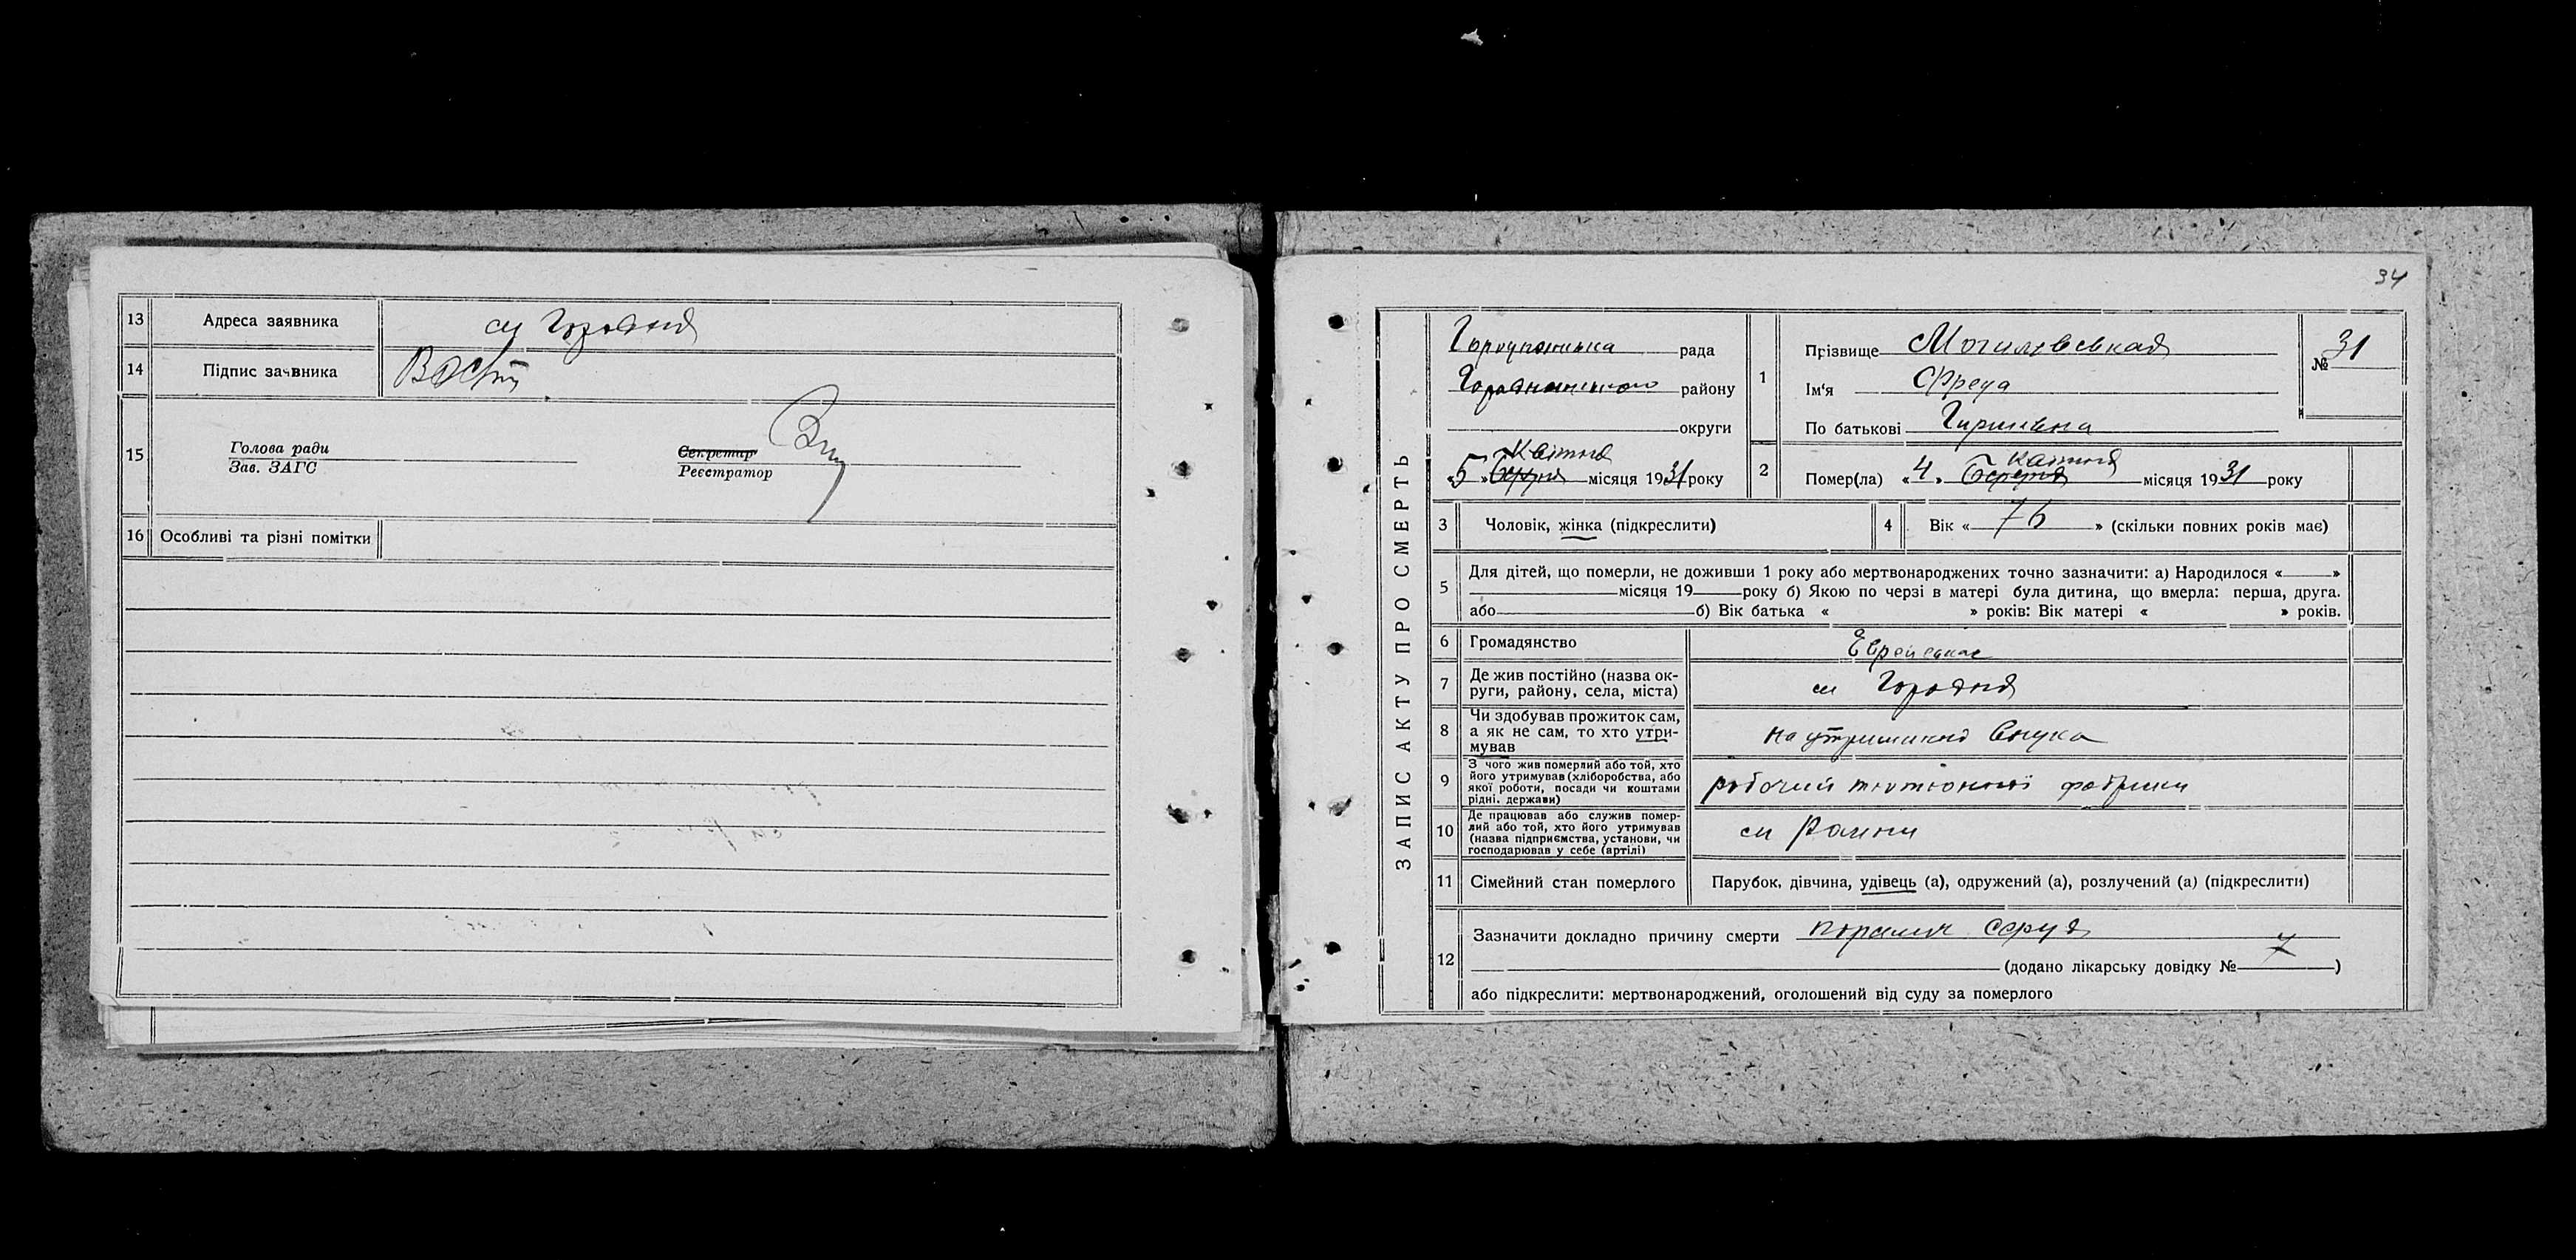 13 Адреса заявника см Городня
14 Підпис заявника
15 Голова ради
Зав. ЗАГС
Секретар
Реєстратор
16 Особливі та різні помітки
34
ЗАПИС АКТУ ПРО СМЕРТЬ
рада
Городнянського району
округи
«5» Березня Квітня місяця 1931 року
1 Прізвище Могилевськая
Ім‘я Фреда
По батькові Гиршівна
№ 31
2 Помер(ла) «4» Березня Квітня місяця 1931 року
3 Чоловік, жінка (підкреслити)
4 Вік « 76 » (скільки повних років має)
5 Для дітей, що померли, не доживши 1 року або мертвонароджених точно зазначити: а) Народилося « »
місяця 19 року б) Якою по черзі в матері була дитина, що вмерла: перша, друга.
або б) Вік батька « » років: Вік матері « » років.
6 Громадянство Єврейська
7 Де жив постійно (назва ок-
руги, району, села, міста) см Городня
8 Чи здобував прожиток сам,
а як не сам, то хто утри-
мував на утриманні внука
9 З чого жив померлий або той, хто
його утримував (хліборобства, або
якої роботи, посади чи коштами
рідні. держави) робочий тютюнової фабрики
10 Де працював або служив помер-
лий або той, хто його утримував
(назва підприємства, установи, чи
господарював у себе (артілі) см Ромни
11 Сімейний стан померлого Парубок, дівчина, удівець (а), одружений (а), розлучений (а) (підкреслити)
12 Зазначити докладно причину смерти параліч серця
(додано лікарську довідку № )
або підкреслити: мертвонароджений, оголошений від суду за померлого